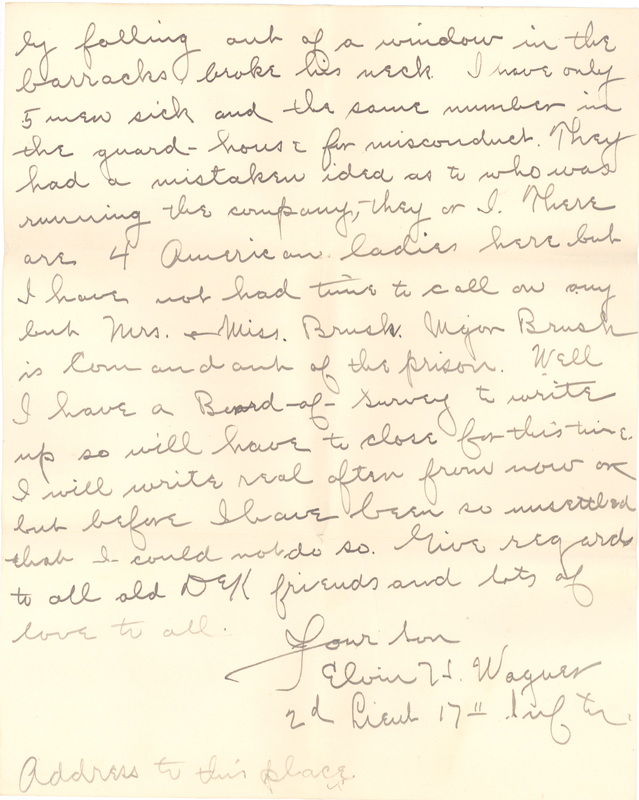 ly falling out of a window in the
barracks, broke his neck. I have only
5 men sick and the same number in
the guard-house for misconduct. They
had a mistaken idea as to who was
running the company, they or I. There
are 4 American ladies here but
I have not had time to call on any
but Mrs. & Miss. Brush. Major Brush
is Comandant of the prison. Well
I have a Board-of-Survey to write
up so will have to close for this time.
I will write real often from now on
but before I have been so unsettled
that I could not do so. Give regards
to all old DeK friends and lots of
love to all.
Your son
Elvin H. Wagner
2d Lieut 17" Inftr.
Address to this place.